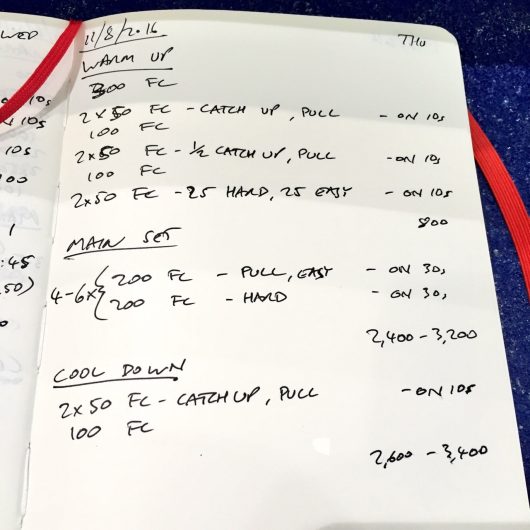 WED
11/8/2016
THU
WARM UP
300 FC
2x50 FC - CATCH UP, PULL - ON 10s
100 FC
2x50 FC - ½ CATCH UP, PULL - ON 10s
100 FC
2x50 FC - 25 HARD, 25 EASY - ON 10s
800
MAIN SET
4-6x { 200 FC - PULL, EASY - ON 30s
200 FC - HARD - ON 30s
2,400 - 3,200
COOL DOWN
2x50 FC - CATCH UP, PULL - ON 10s
100 FC
2,600 - 3,400
10s
10s
10s
00
1
:45
50)